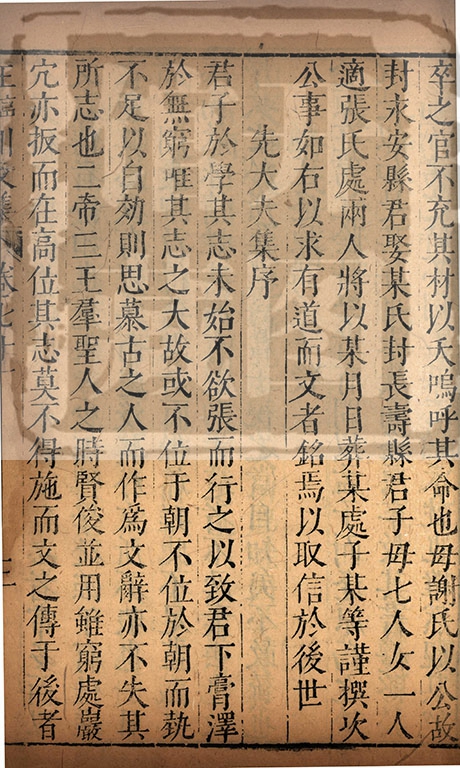 卒之官不充其材以夭嗚呼其命也母謝氏以公故
封永安縣君娶某氏封長壽縣君子母七人女一人
適張氏處兩人將以某月日葬某處子某等謹撰次
公事如右以求有道而文者銘焉以取信於後世
先大夫集序
君子於學其志未始不欲張而行之以致君下膏澤
於無窮唯其志之大故或不位于朝不位於朝而埶
不足以自効則思慕古之人而作爲文辭亦不失其
所志也二帝三王羣聖人之時賢俊並用雖窮處巖
宂亦扳而在高位其志莫不得施而文之傳于後者